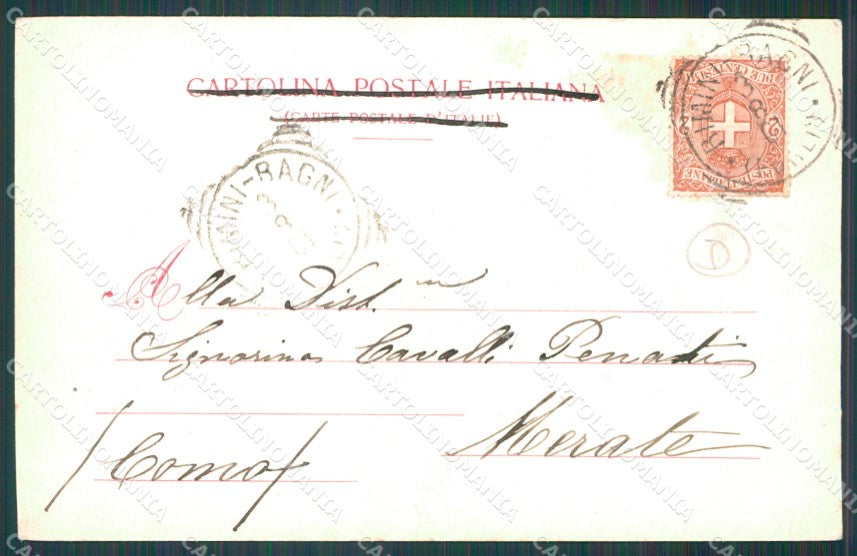 CARTOLINA POSTALE ITALIANA
(CARTE POSTALE D'ITALIE)
RIMINI-BAGNI
RIMINI-BAGNI
D
Alla Dist.ma
Signorina Cavalli Penati
Merate
(Como)
CARTOLINOMANIA